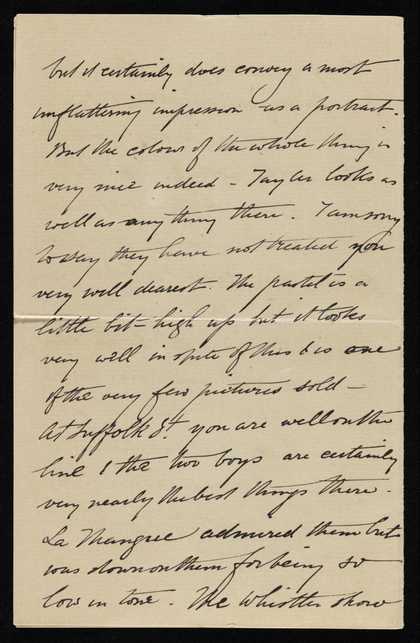 but it certainly does convey a most
unflattering impression as a portrait.
But the colour of the whole thing is
very nice indeed - Tayler looks as
well as anything there. I am sorry
to say they have not treated you
very well dearest. The pastel is a
little bit high up but it looks
very well in spite of this & is one
of the very few pictures sold -
At Suffolk St. you are well on the
line & the two boys are certainly
very nearly the best things there.
La Thangue admired them but
was down on them for being so
low in tone. The Whistler show